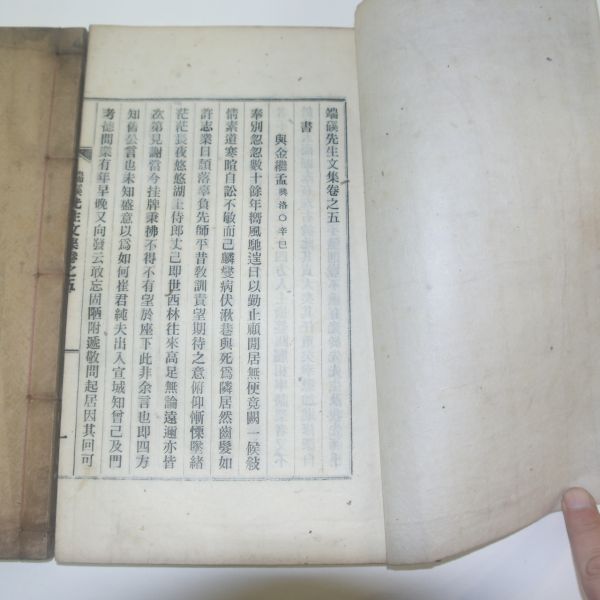 端磎先生文集卷之五
書
與金繼孟興洛○辛巳
奉別忽忽數十餘年嚮風馳遑日以勤止顧閒居無便竟闕一候敍
情素道寒暄自訟不敏而已麟變病伏湫巷與死爲隣居然齒髮如
許志業日頹落辜負先師平昔敎訓責望期待之意俯仰慚慄墜緖
茫茫長夜悠悠湖上侍郎丈已卽世西林往來高足無論遠邇亦皆
次第見謝當今挂牌秉拂不得不有望於座下此非余言也卽四方
知舊公言也未知盛意以爲如何崔君純夫出入宣城知曾已及門
考德問業有年早晚又向發云敢忘固陋附遞敬問起居因其回可
端磎先生文集卷之五